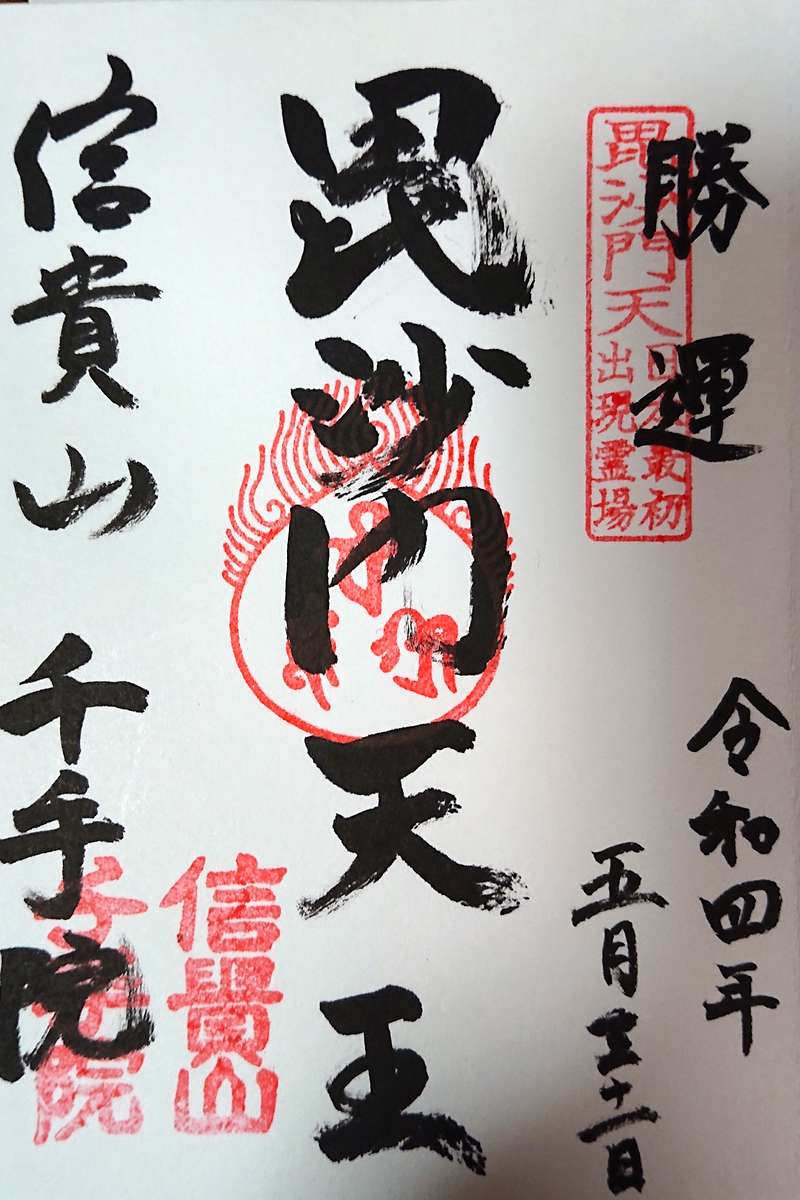 勝運
毘沙門天
日本最初
出現霊場
令和四年
五月三十一日
毘沙門天王
信貴山 千手院
信貴山
千手院